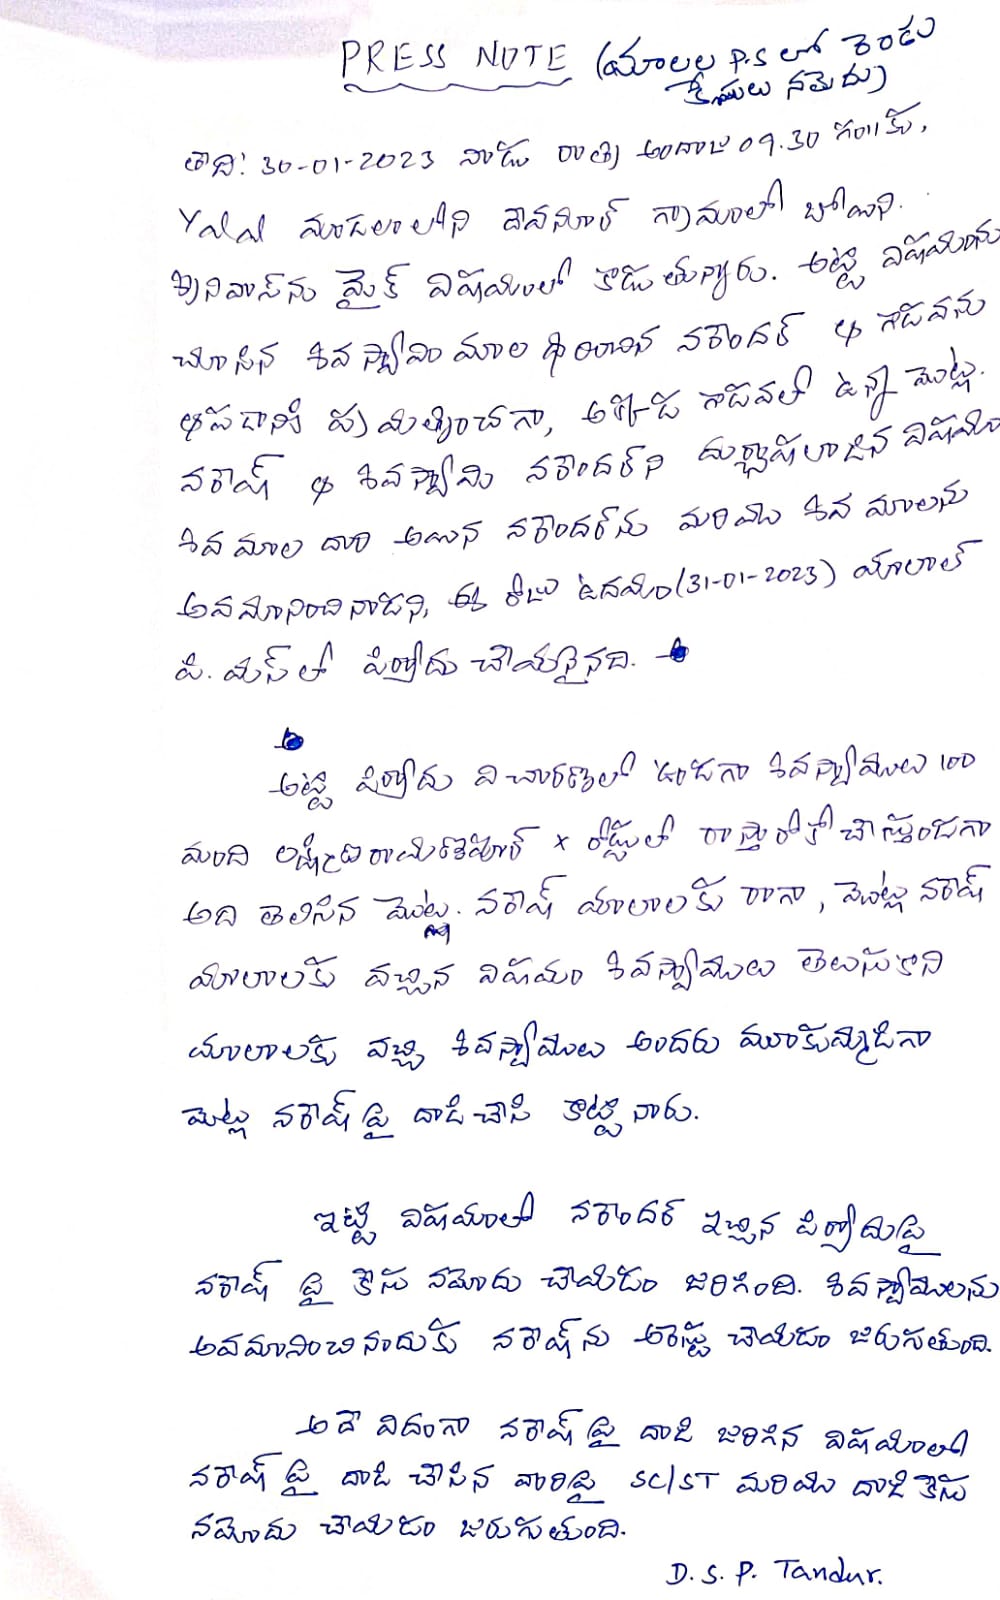 PRESS NOTE (యాలల P.S లో రెండు
కేసులు నమోదు)
తాది: 30-01-2023 నాడు రాత్రి అందాజ 09.30 గం॥కు,
Yalal మండలంలోని దేవనూర్ గ్రామంలో బోయిని.
శ్రీనివాస్‌ను మైక్ విషయంలో కొడుతున్నారు. అట్టి విషయంను
చూసిన శివ స్వామి మాల ధరించిన నరేందర్ ఆ గొడవను
ఆపడానికి ప్రయత్నించగా, అక్కడ గొడవలో ఉన్న మెట్లు.
నరేష్ ఆ శివస్వామి నరేందర్‌ని దుర్భాషలాడిన విషయం
శివ మాల దారి అయిన నరేందర్‌ను మరియు శివ మాలను
అవమానించినాడని, ఈ రోజు ఉదయం (31-01-2023) యాలాల్
పి. యస్ లో పిర్యాదు చేయనైనది.
అట్టి పిర్యాదు విచారణలో ఉండగా శివస్వాములు 100
మంది లక్ష్మీనారాయణపూర్ x రోడ్డులో రాస్తారోకో చేస్తుండగా
అది తెలిసిన మెట్లు. నరేష్ యాలాలకు రాగా, మెట్లు నరేష్
యాలాలకు వచ్చిన విషయం శివస్వాములు తెలుసుకొని
యాలాలకు వచ్చి శివస్వాములు అందరు మూకుమ్మడిగా
మెట్లు నరేష్ పై దాడి చేసి కొట్టినారు.
ఇట్టి విషయంలో నరేందర్ ఇచ్చిన పిర్యాదుపై
నరేష్ పై కేసు నమోదు చేయడం జరిగింది. శివస్వాములను
అవమానించినందుకు నరేష్‌ను అరెస్టు చేయడం జరుగుతుంది.
అదే విదంగా నరేష్ పై దాడి జరిగిన విషయంలో
నరేష్ పై దాడి చేసిన వారిపై SC/ST మరియు దాడి కేసు
నమోదు చేయడం జరుగుతుంది.
D. S. P. Tandur.